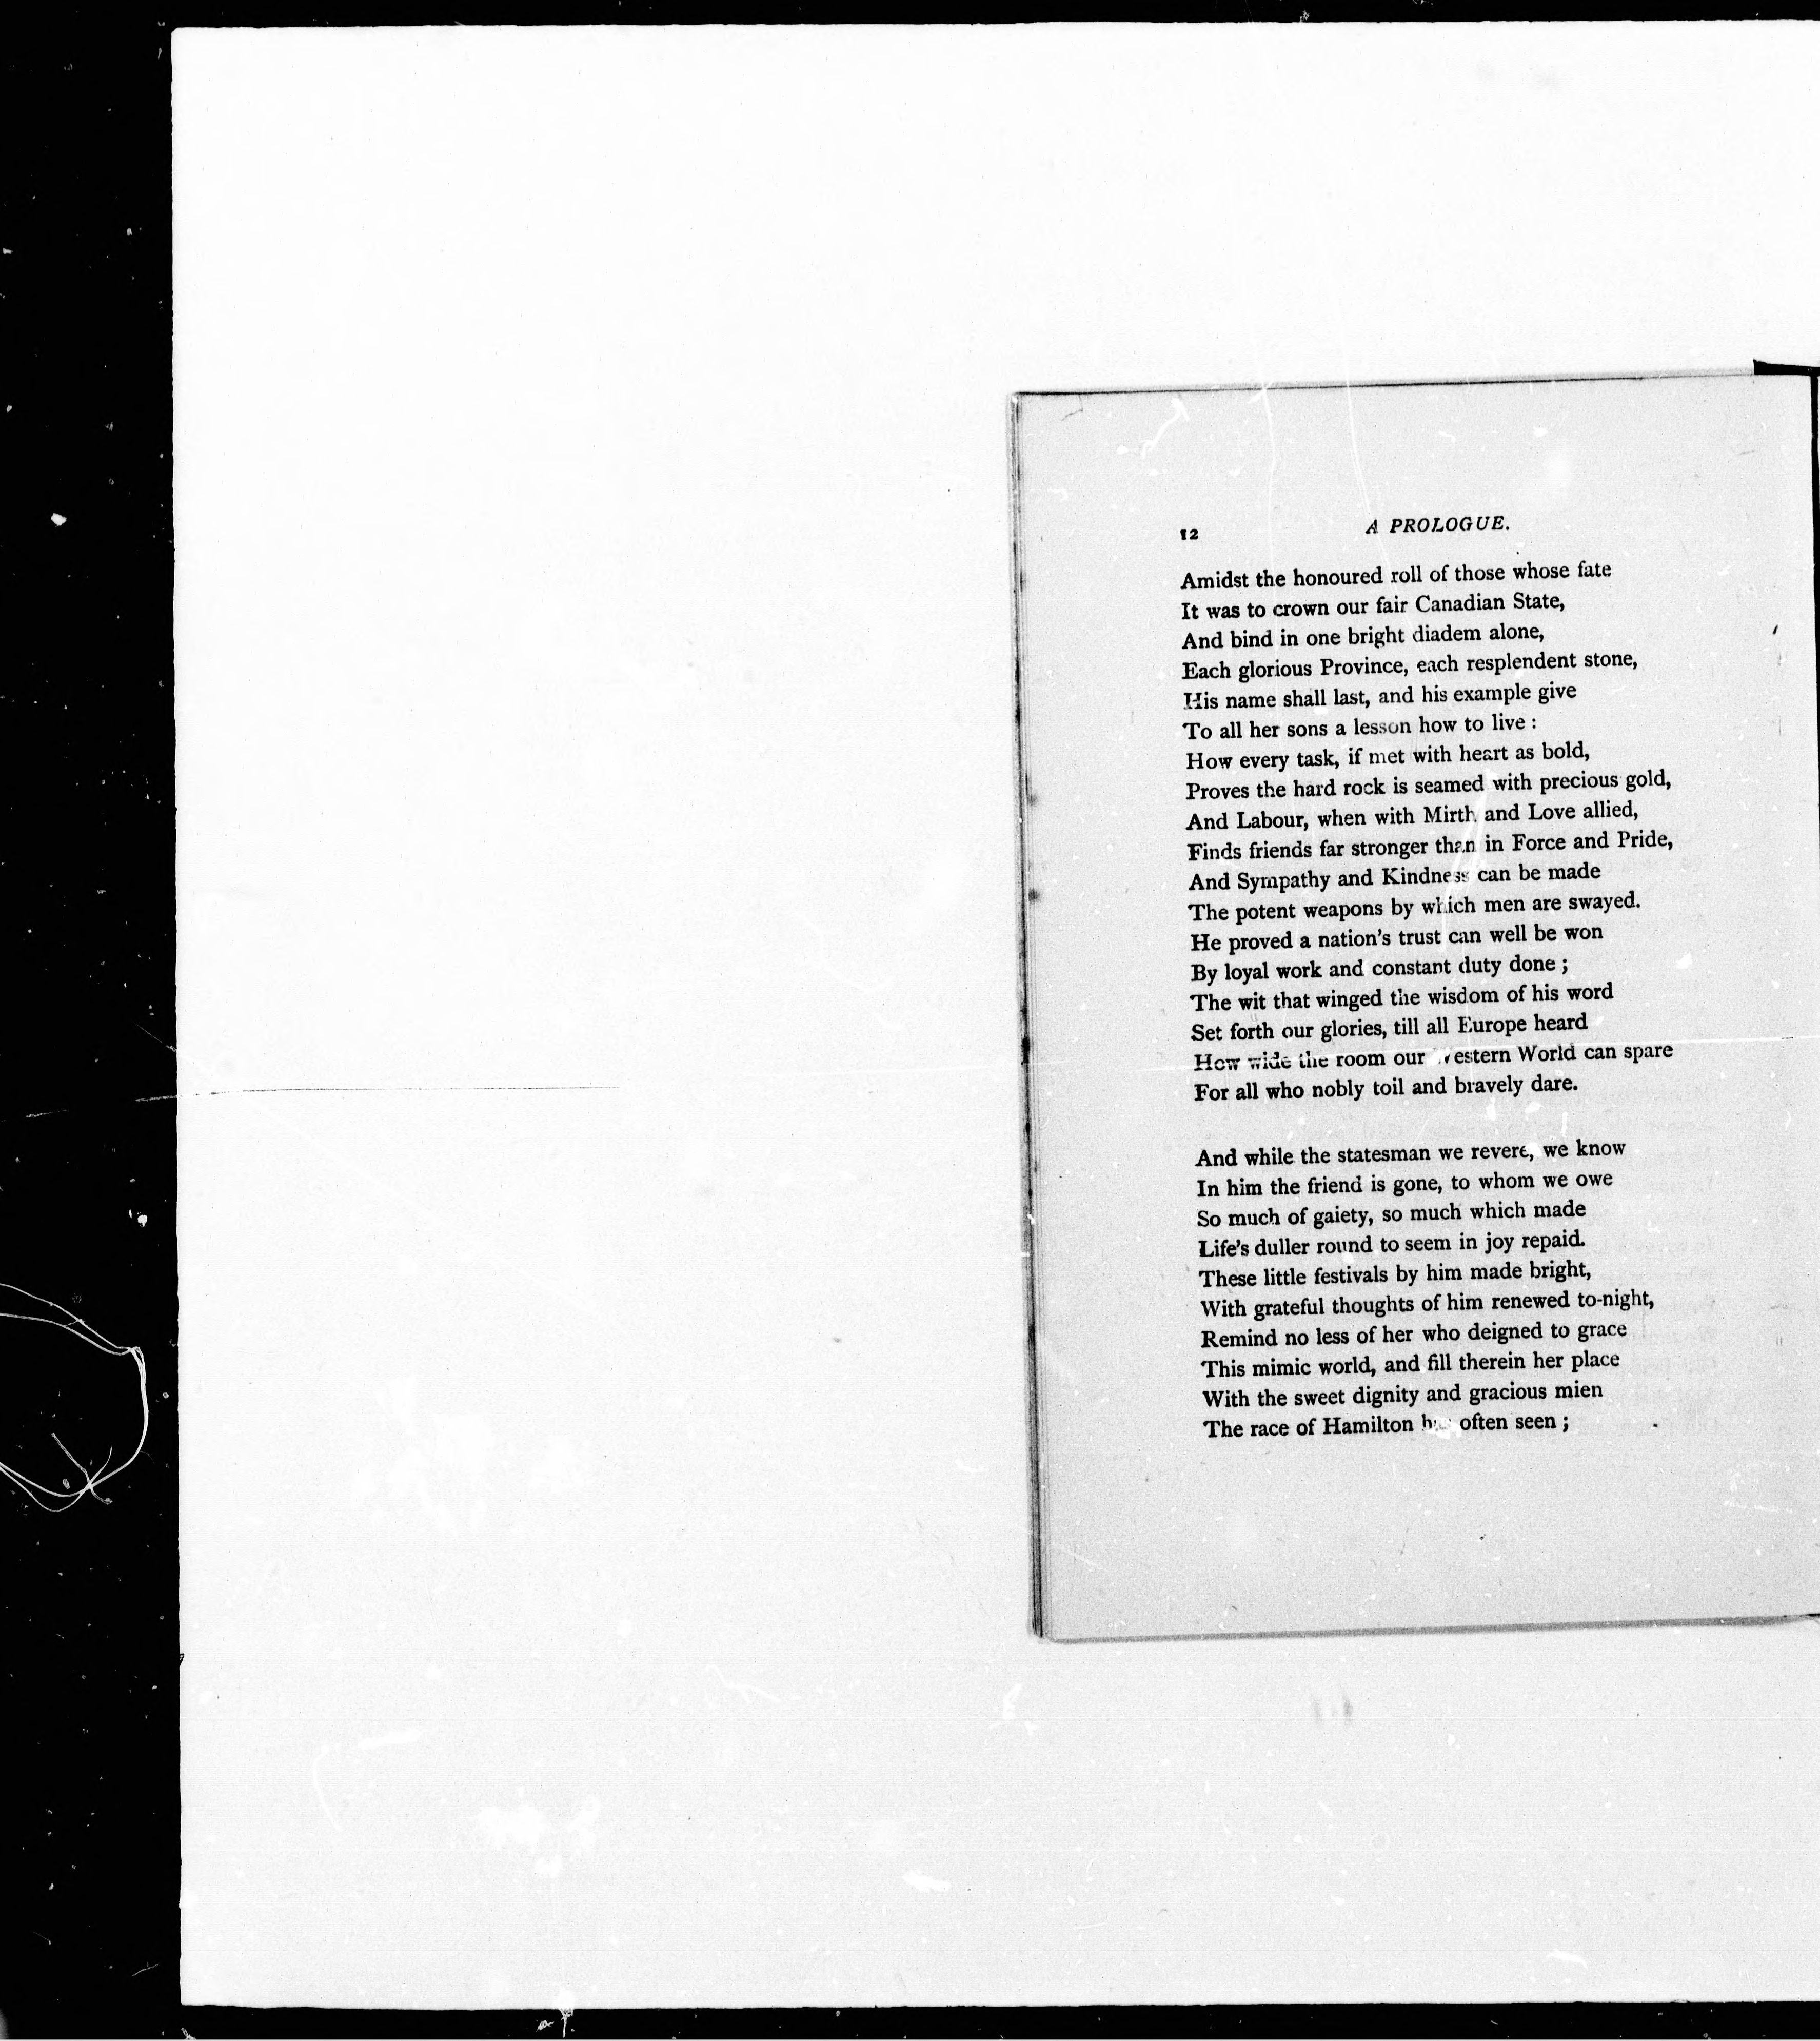 12
A PROLOGUE.
Amidst the honoured roll of those whose fate
It was to crown our fair Canadian State,
And bind in one bright diadem alone,
Each glorious Province, each resplendent stone,
His name shall last, and his example give
To all her sons a lesson how to live :
How every task, if met with heart as bold,
Proves the hard rock is seamed with precious gold,
And Labour, when with Mirth and Love allied,
Finds friends far stronger than in Force and Pride,
And Sympathy and Kindness can be made
The potent weapons by which men are swayed.
He proved a nation's trust can well be won
By loyal work and constant duty done ;
The wit that winged the wisdom of his word
Set forth our glories, till all Europe heard
How wide the room our Western World can spare
For all who nobly toil and bravely dare.
And while the statesman we revere, we know
In him the friend is gone, to whom we owe
So much of gaiety, so much which made
Life's duller round to seem in joy repaid.
These little festivals by him made bright,
With grateful thoughts of him renewed to-night,
Remind no less of her who deigned to grace
This mimic world, and fill therein her place
With the sweet dignity and gracious mien
The race of Hamilton often seen ;